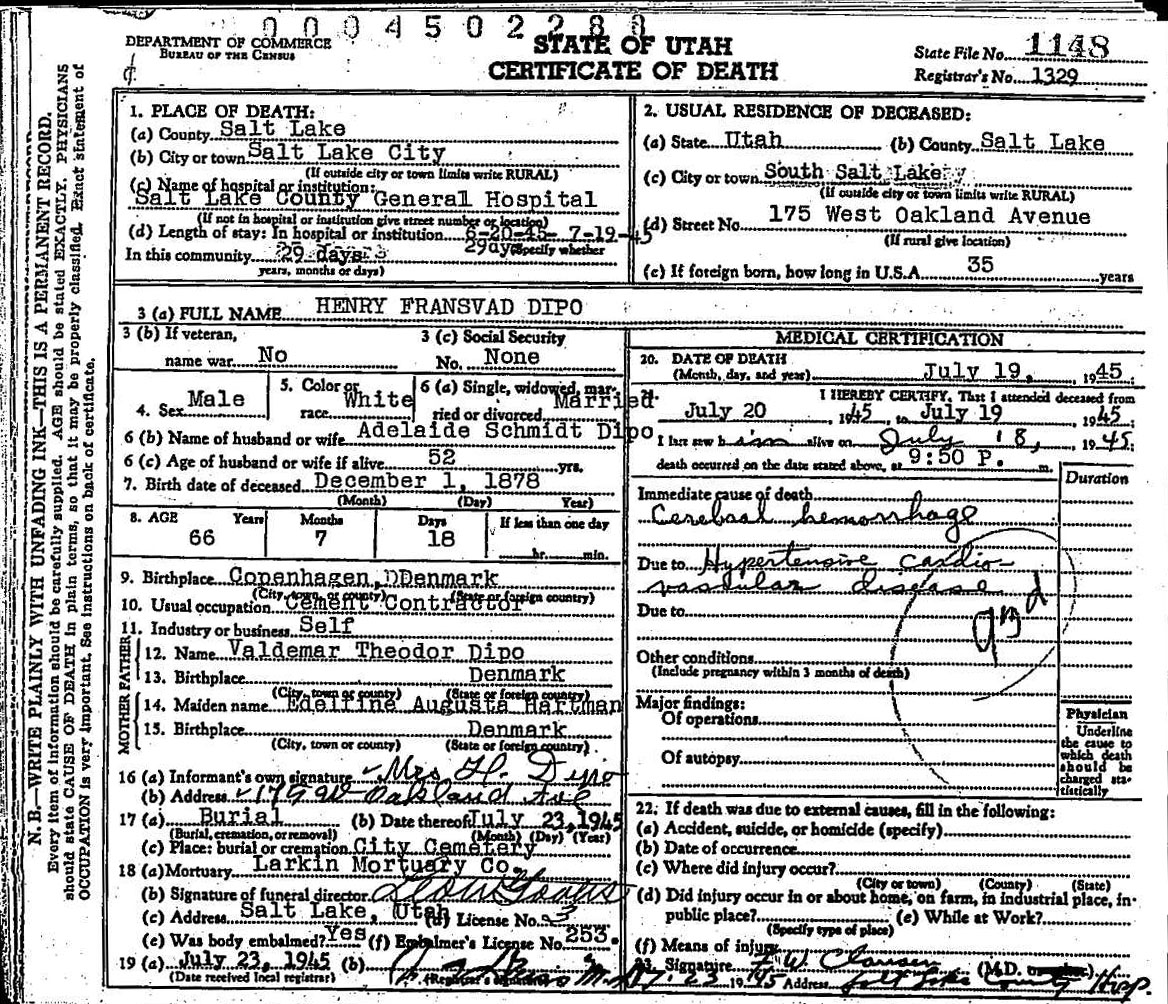 000450228
DEPARTMENT OF COMMERCE
BUREAU OF THE CENSUS
STATE OF UTAH
CERTIFICATE OF DEATH
State File No. 1148
Registrar's No. 1329
N. B.—WRITE PLAINLY WITH UNFADING INK—THIS IS A PERMANENT RECORD.
Every item of information should be carefully supplied. AGE should be stated EXACTLY. PHYSICIANS
should state CAUSE OF DEATH in plain terms, so that it may be properly classified. Exact statement of
OCCUPATION is very important. See instructions on back of certificate.
1. PLACE OF DEATH:
(a) County Salt Lake
(b) City or town Salt Lake City
(If outside city or town limits write RURAL)
(c) Name of hospital or institution:
Salt Lake County General Hospital
(If not in hospital or institution give street number or location)
(d) Length of stay: In hospital or institution 6-20-45- 7-19-45
29days (Specify whether
In this community 29 days
years, months or days)
2. USUAL RESIDENCE OF DECEASED:
(a) State Utah (b) County Salt Lake
(c) City or town South Salt Lake
(If outside city or town limits write RURAL)
(d) Street No. 175 West Oakland Avenue
(If rural give location)
(e) If foreign born, how long in U.S.A. 35 years
3 (a) FULL NAME HENRY FRANSVAD DIPO
3 (b) If veteran,
name war No
3 (c) Social Security
No. None
4. Sex Male
5. Color or
race White
6 (a) Single, widowed, mar-
ried or divorced Married
6 (b) Name of husband or wife Adelaide Schmidt Dipo
6 (c) Age of husband or wife if alive 52 yrs.
7. Birth date of deceased December 1, 1878
(Month) (Day) Year)
8. AGE Years Months Days If less than one day
66 7 18 hr. min.
9. Birthplace Copenhagen, DDenmark
(City, town, or county) (State or foreign country)
10. Usual occupation Cement Contractor
11. Industry or business Self
FATHER
12. Name Valdemar Theodor Dipo
13. Birthplace Denmark
(City, town or county) (State or foreign country)
MOTHER
14. Maiden name Edelfine Augusta Hartman
15. Birthplace Denmark
(City, town or county) (State or foreign country)
16 (a) Informant's own signature Mrs H. Dipo
(b) Address 175 W Oakland Ave
17 (a) Burial (b) Date thereof July 23, 1945
(Burial, cremation, or removal) (Month) (Day) (Year)
(c) Place: burial or cremation City Cemetery
18 (a) Mortuary Larkin Mortuary Co.
(b) Signature of funeral director
(c) Address Salt Lake, Utah (d) License No. 3
(e) Was body embalmed? Yes (f) Embalmer's License No. 253.
19 (a) July 23, 1945 (b)
(Date received local registrar) (Registrar's signature)
MEDICAL CERTIFICATION
20. DATE OF DEATH
(Month, day, and year) July 19, 1945
I HEREBY CERTIFY, That I attended deceased from
July 20 1945 to July 19 1945.
I last saw him alive on July 18, 1945.
death occurred on the date stated above, at 9:50 P. m.
Duration
Immediate cause of death
Cerebral hemorrhage
Due to Hypertensive cardio-
vascular disease
Due to
Other conditions
(Include pregnancy within 3 months of death)
Major findings:
Of operations
Of autopsy
Physician
Underline
the cause to
which death
should be
charged sta-
tistically
22. If death was due to external causes, fill in the following:
(a) Accident, suicide, or homicide (specify)
(b) Date of occurrence
(c) Where did injury occur?
(City or town) (County) (State)
(d) Did injury occur in or about home, on farm, in industrial place, in-
public place? (e) While at Work?
(Specify type of place)
(f) Means of injury
23. Signature W. Clausen (M.D.
1945 Address Salt Lake County Hosp.